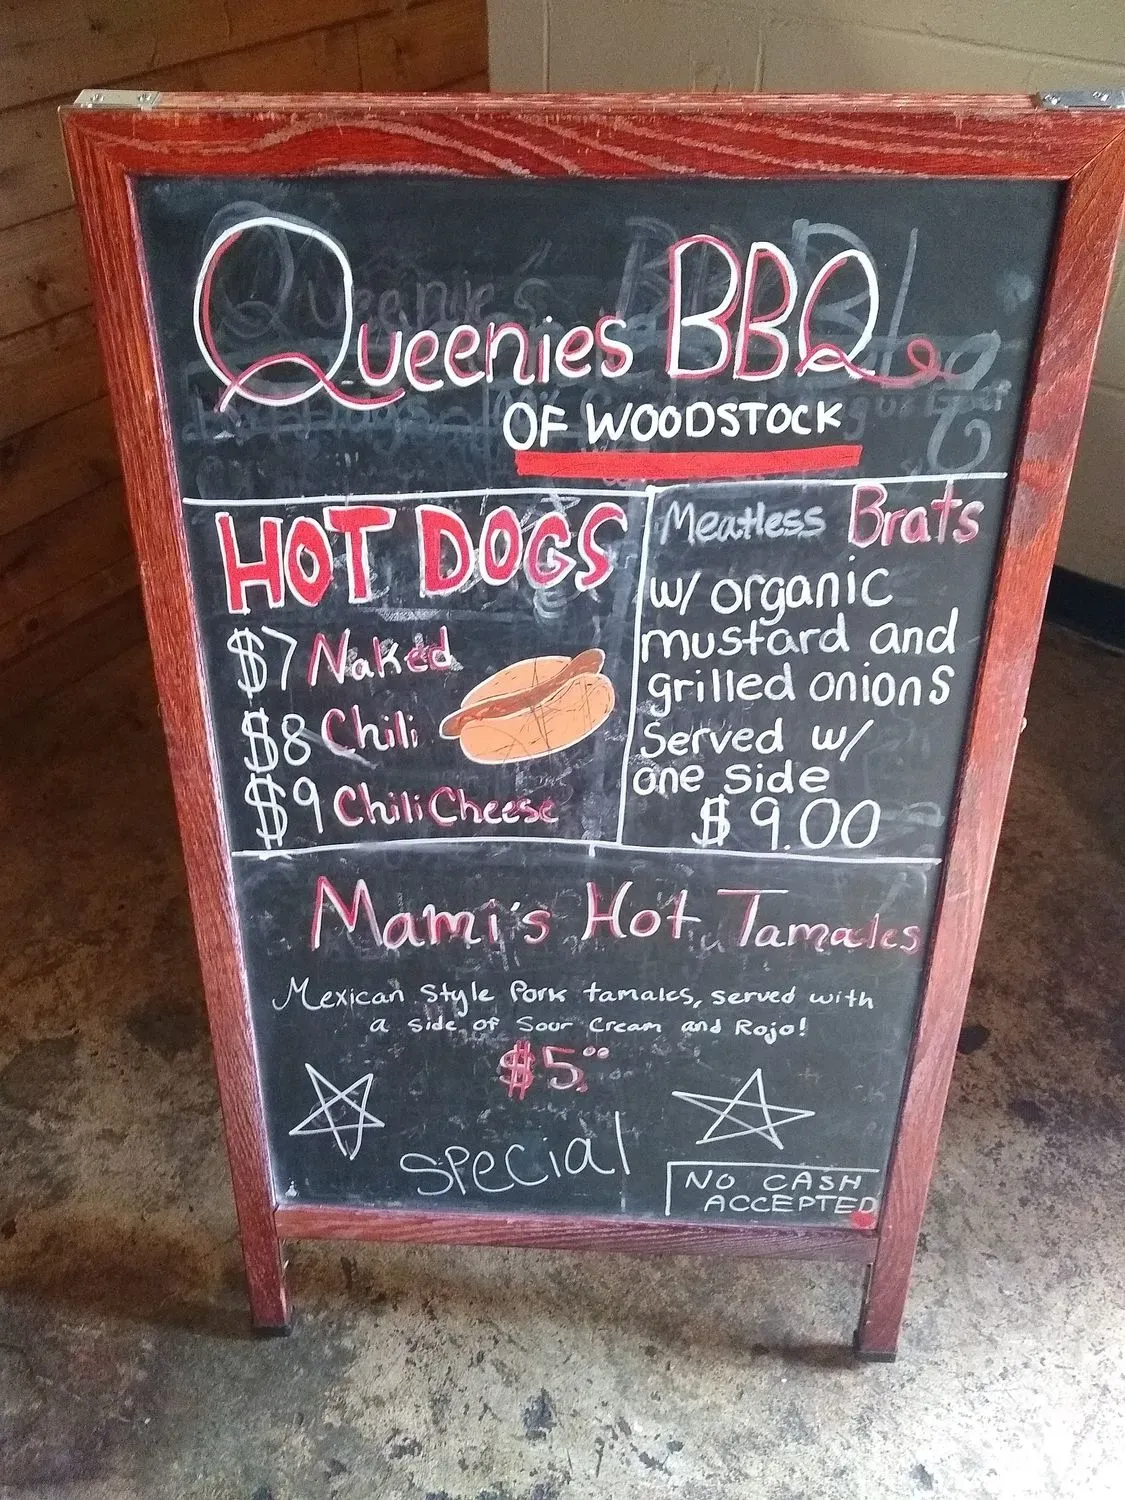 Queenies BBQ
OF WOODSTOCK
HOT DOGS
$7 Naked
$8 Chili
$9 Chili Cheese
Meatless Brats
w/ organic
mustard and
grilled onions
Served w/
one side
$9.00
Mami's Hot Tamales
Mexican Style Pork tamales, served with
a side of Sour Cream and Rojo!
$5.00
Special
NO CASH
ACCEPTED